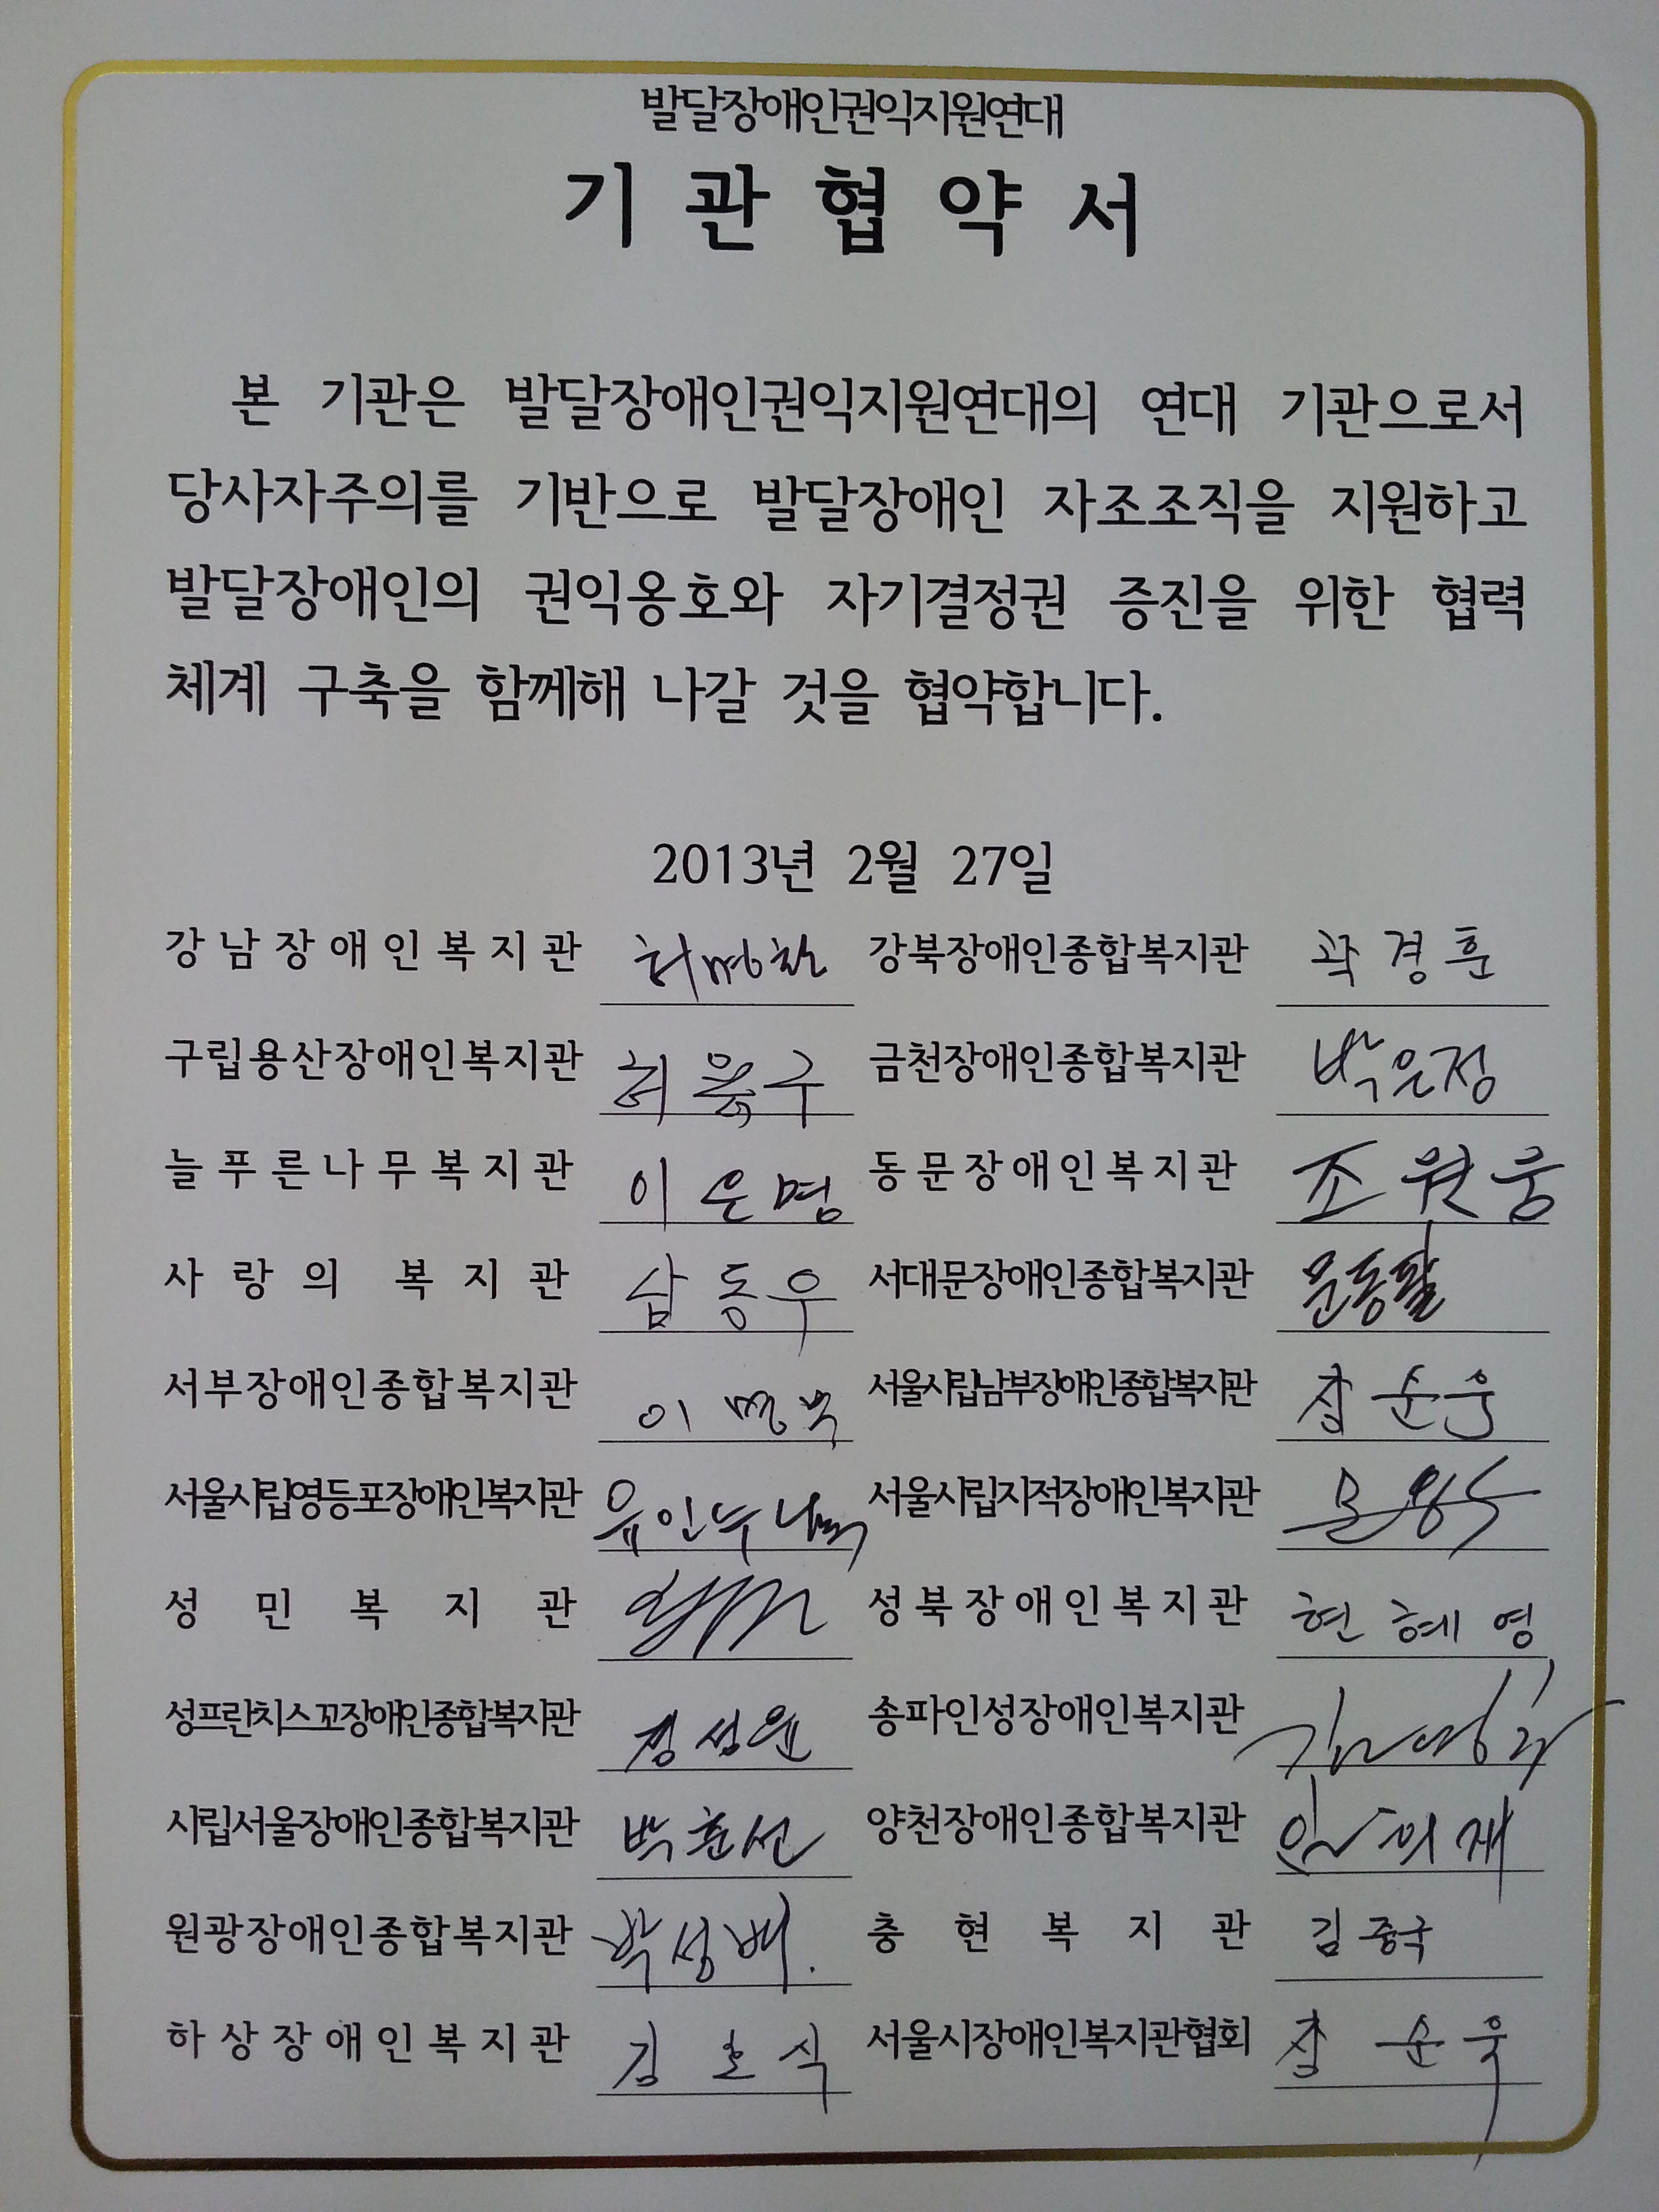 발달장애인권익지원연대
기 관 협 약 서
본 기관은 발달장애인권익지원연대의 연대 기관으로서
당사자주의를 기반으로 발달장애인 자조조직을 지원하고
발달장애인의 권익옹호와 자기결정권 증진을 위한 협력
체계 구축을 함께해 나갈 것을 협약합니다.
2013년 2월 27일
강남장애인복지관 강북장애인종합복지관 곽경훈
구립용산장애인복지관 금천장애인종합복지관 박은정
늘푸른나무복지관 이은명 동문장애인복지관
사랑의 복지관 서대문장애인종합복지관 문동팔
서부장애인종합복지관 서울시립남부장애인종합복지관
서울시립영등포장애인복지관 서울시립지적장애인복지관
성민복지관 성북장애인복지관 현혜영
성프란치스꼬장애인종합복지관 송파인성장애인복지관
시립서울장애인종합복지관 양천장애인종합복지관
원광장애인종합복지관 박성배. 충현복지관 김종국
하상장애인복지관 김호식 서울시장애인복지관협회